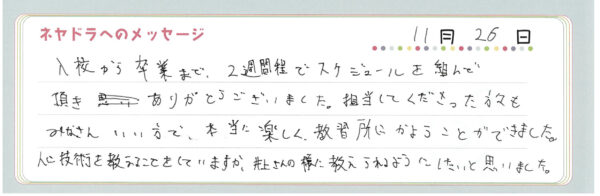 ネヤドラへのメッセージ 11月 26日
入校から卒業まで、2週間程でスケジュールを組んで
頂き ありがとうございました。担当してくださった方々も
みなさん いい方で、本当に楽しく、教習所にかようことができました。
人に技術を教えることをしていますが、井上さんの様に教えられるようにしたいと思いました。